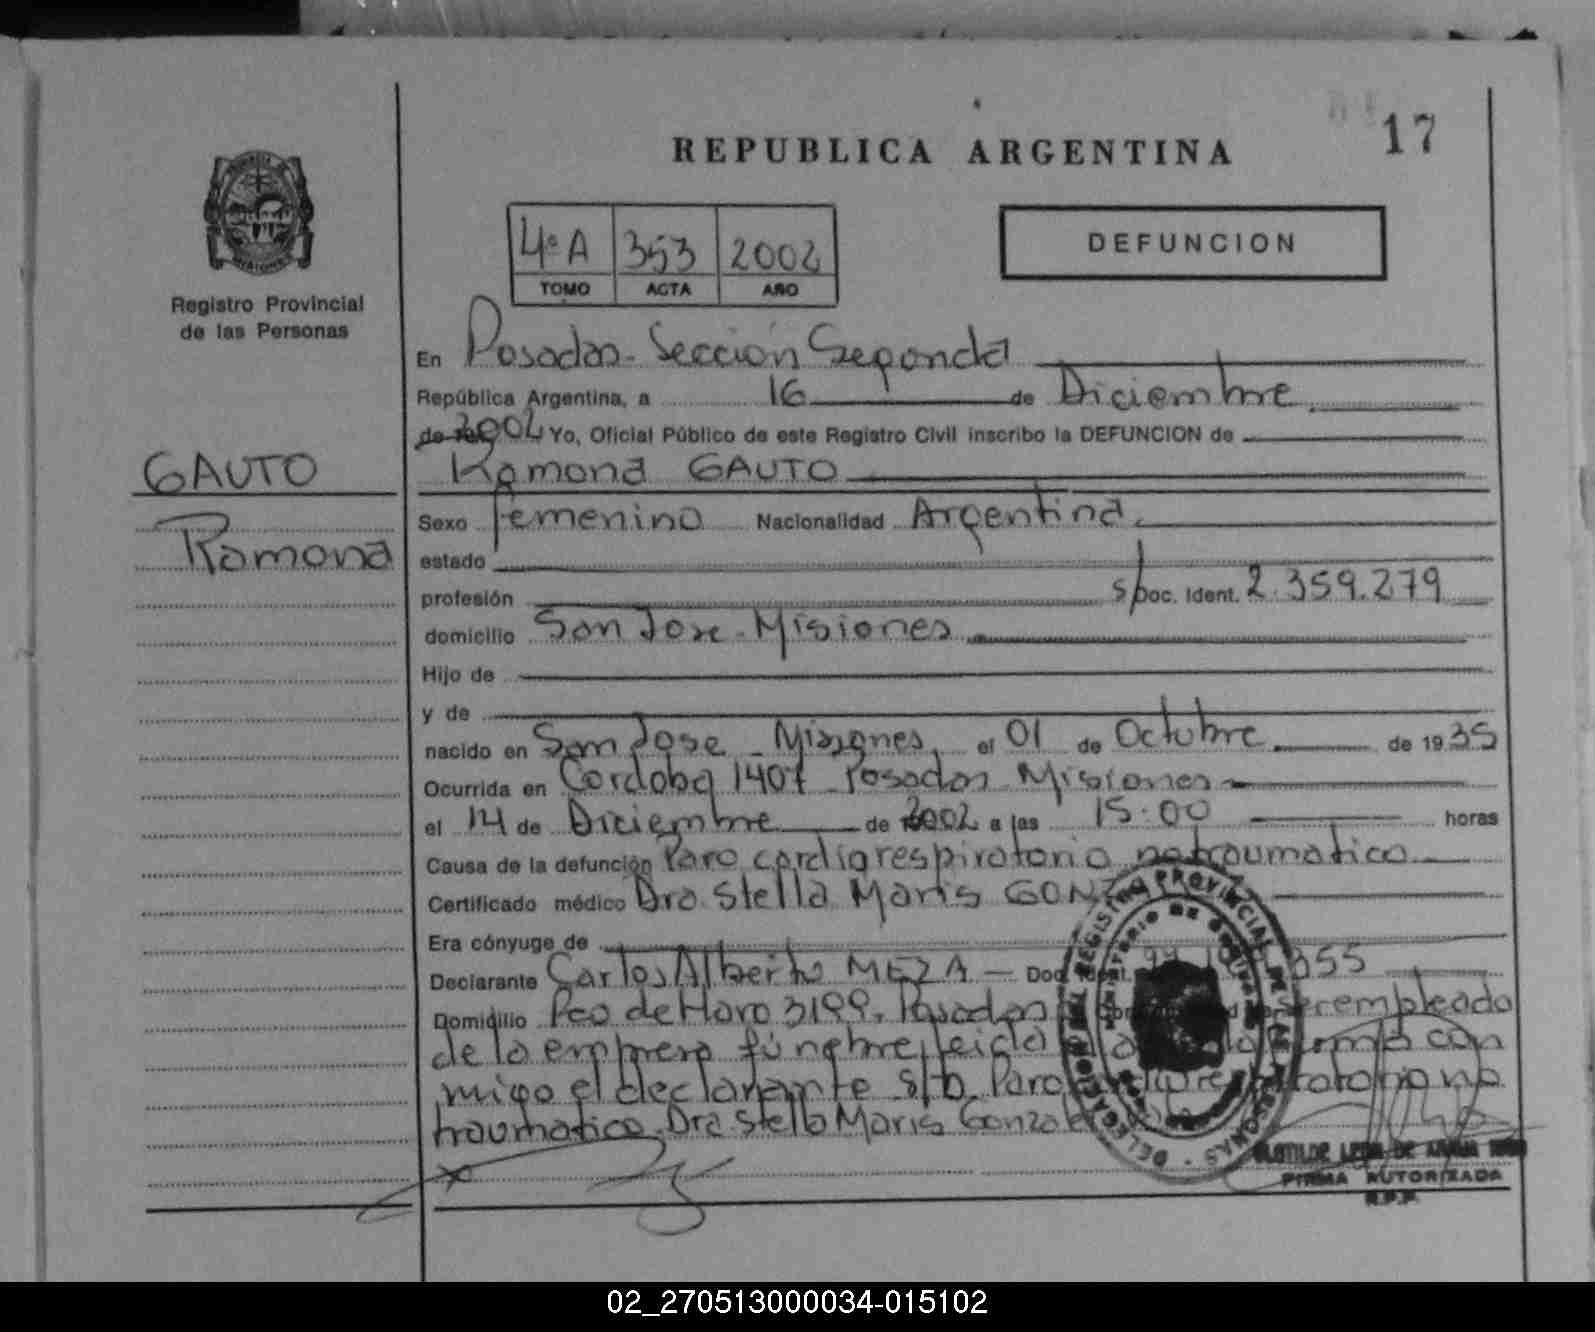 17
REPUBLICA ARGENTINA
4ºA 353 2002
TOMO ACTA AÑO
DEFUNCION
Registro Provincial
de las Personas
GAUTO
Ramona
En Posadas - Sección Segunda
República Argentina, a 16 de Diciembre
de 2002 Yo, Oficial Público de este Registro Civil inscribo la DEFUNCION de
Ramona GAUTO
Sexo femenino Nacionalidad Argentina
estado
profesión s/Doc. Ident. 2.359.279
domicilio San Jose - Misiones
Hijo de
y de
nacido en San Jose - Misiones el 01 de Octubre de 1935
Ocurrida en Cordoba 1407 Posadas Misiones
el 14 de Diciembre de 2002 a las 15:00 horas
Causa de la defunción Paro cardiorespiratorio no traumatico
Certificado médico Dra. Stella Maris
Era cónyuge de
Declarante Carlos Alberto MEZA - Doc. Ident. 355
Domicilio Pco de Haro 3199. Posadas ser empleado
de la empresa fúnebre, leida el acta la firma con
migo el declarante s/b. Paro no
traumatico. Dra Stella Maris
DELEGACION DEL REGISTRO PROVINCIAL DE LAS PERSONAS
FIRMA AUTORIZADA
R.P.P.
02_270513000034-015102